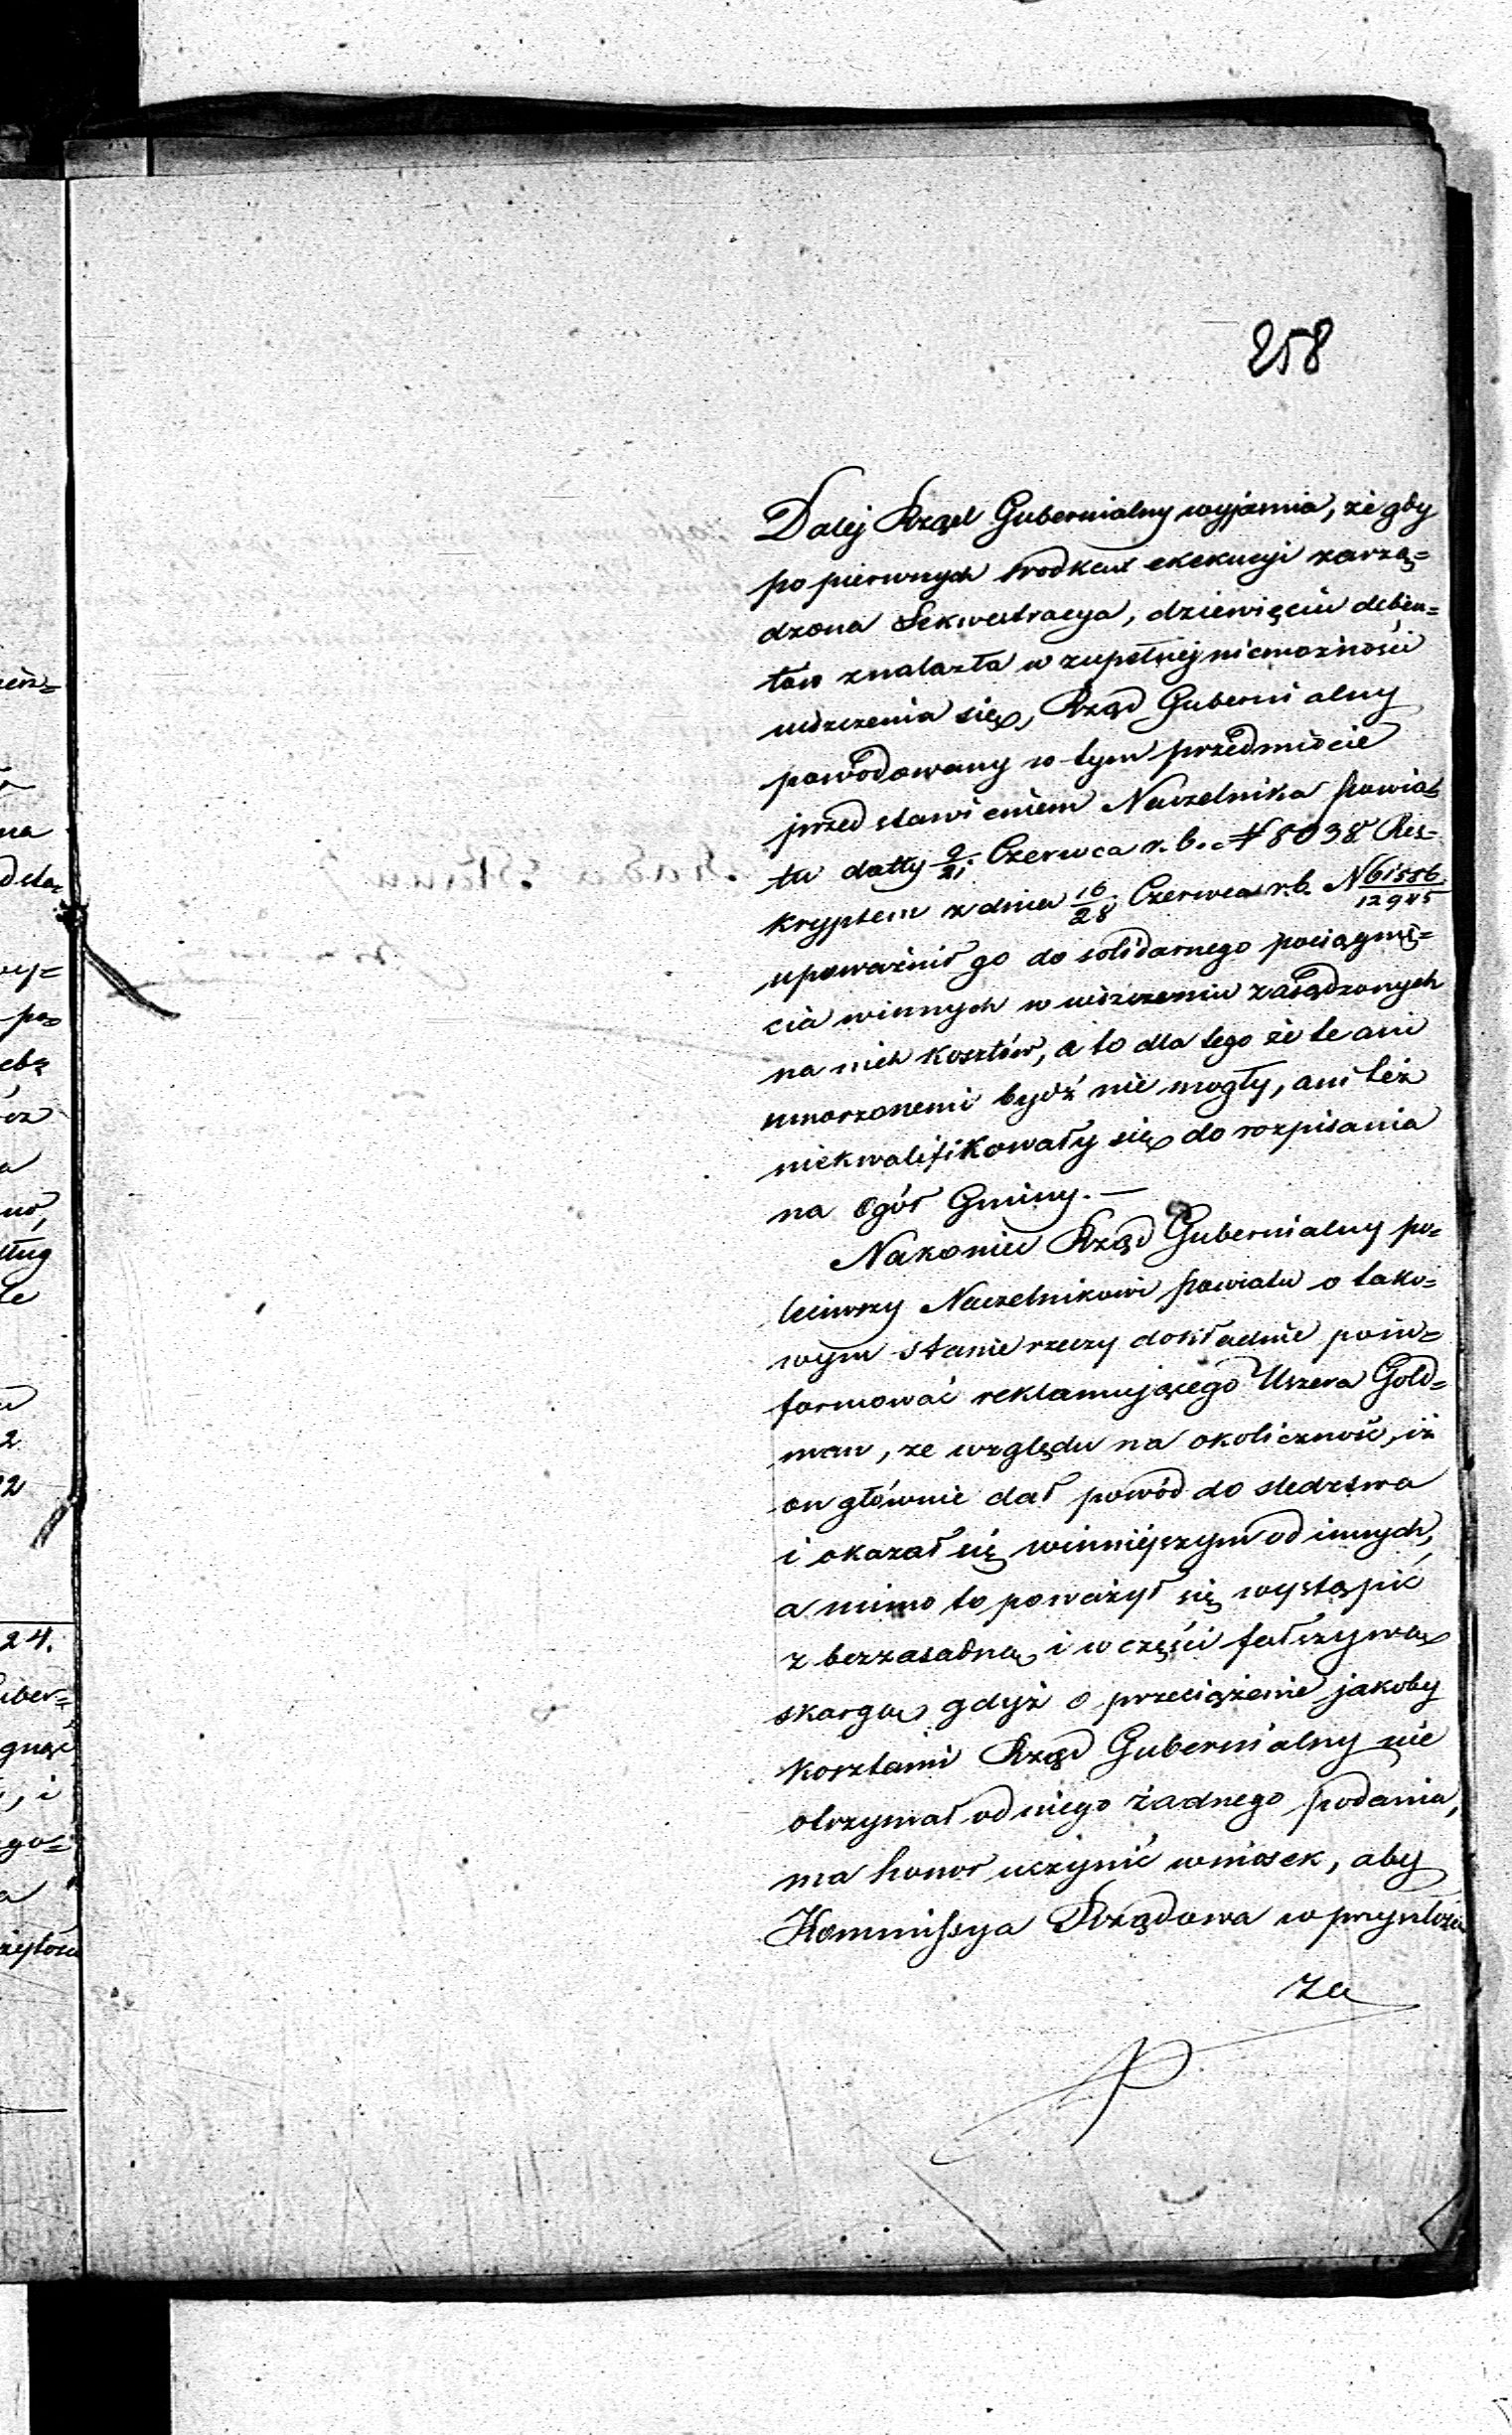 258
Dalej Rząd Gubernialny wyjaśnia, że gdy
po pierwszych środkach exekucyi zarzą=
dzona Sekwestracya, dziewięciu deben=
tów znalazła w zupełnej niemożności
uiszczenia się, Rząd Gubernialny
powodowany w tym przedmiocie
przedstawieniem Naczelnika Powia=
tu datty 9/21 Czerwca r. b. N 8038 Res=
kryptem z dnia 16/28 Czerwca r. b. N 61556/12945
upoważnił go do solidarnego pociągnię=
cia winnych w uiszczeniu zasądzonych
na nich kosztów, a to dla tego że te ani
umorzonemi bydź nie mogły, ani też
niekwalifikowały się do rozpisania
na Ogół Gminy. —
Nakoniec Rząd Gubernialny po=
leciwszy Naczelnikowi Powiatu o tako=
wym stanie rzeczy dokładnie poin=
formować reklamującego Uszera Gold=
man, ze względu na okoliczność, iż
on głównie dał powód do śledztwa
i okazał się winniejszym od innych,
a mimo to poważył się wystąpić
z bezzasadną i w części fałszywą
skargą gdyż o przeciążenie jakoby
kosztami Rząd Gubernialny nie
otrzymał od niego żadnego podania,
ma honor uczynić wniosek, aby
Kommissya Rządowa w przyszłości
za